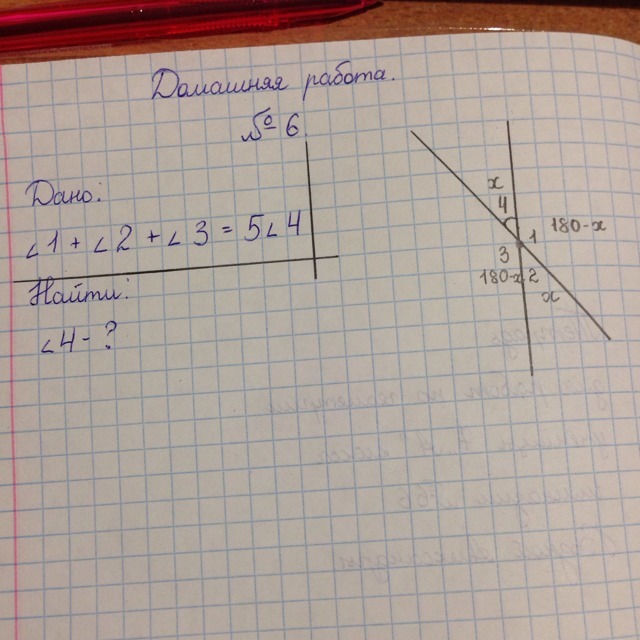 Домашняя работа.
№ 6
Дано:
∠1 + ∠2 + ∠3 = 5∠4
Найти:
∠4 - ?
x
4
1 180-x
3
180-x 2
x